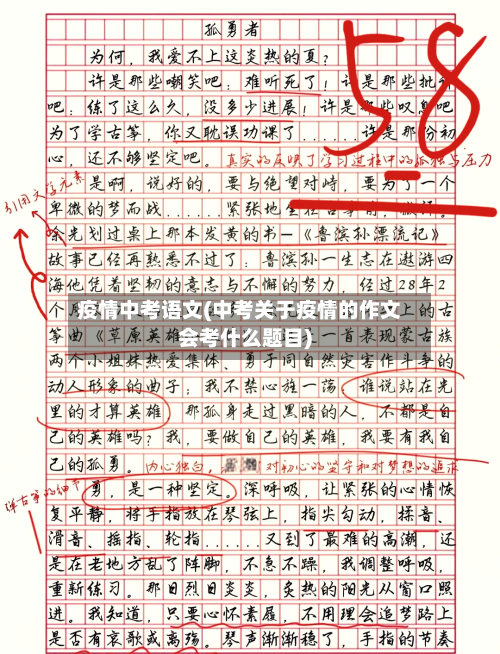 孤勇者
58
为何，我爱不上这炎热的夏？
许是那些嘲笑吧：难听死了！许是那些批评
吧：练了这么久，没多少进展！许是那些叹息吧
为了学古筝，你又耽误功课了……许是那份初
心，还不够坚定吧。
真实的反映了学习过程中的孤独与压力
引用文学元素
是啊，说好的，要与绝望对峙，要为了一个
卑微的梦而战……紧张地坐在古筝前，
余光划过桌上那本发黄的书—《鲁滨孙漂流记》
故事已经再熟悉不过了：鲁滨孙一生志在遨游四
海他凭着坚韧的意志与不懈的努力，经过28年2
个月
上的古
疫情中考语文(中考关于疫情的作文
会考什么题目)
筝曲《草原英雄
一首表现蒙古族
两个小姐妹热爱集体、勇于同自然灾害作斗争的
动人形象的曲子；我不禁心旌一荡，谁说站在光
里的才算英雄 那孤身走过黑暗的人，不都是自
己的英雄吗？我，要做自己的英雄，我要有我自
己的孤勇。
内心独白，
对初心的坚守和对梦想的追求
弹古筝的细节
勇，是一种坚定。深呼吸，让紧张的心情恢
复平静，将手指放在琴弦上，指尖勾动，揉音、
滑音、摇指、轮指……又到了最难的高潮，还
是在老地方乱了阵脚，不急不躁，我调整呼吸，
重新练习。那日烈日炎炎，炙热的阳光从窗口照
进。我知道，只要心怀素履，不用理会追梦路上
是否有哀歌或离殇。琴声渐渐稳了，手指的节奏